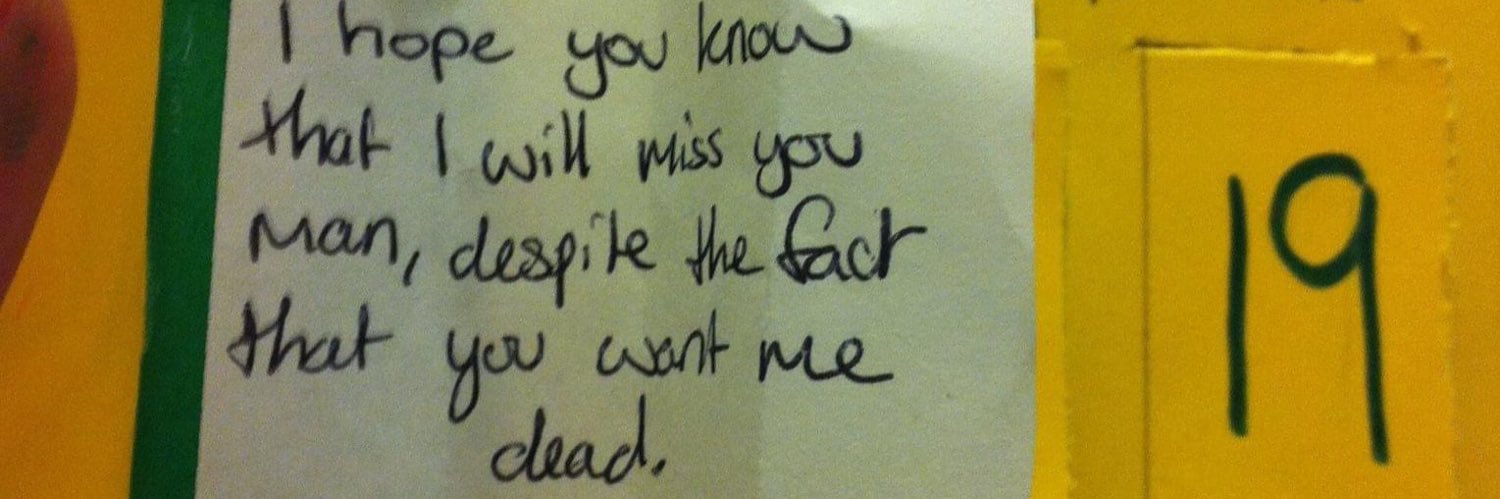 I hope you know
that I will miss you
Man, despite the fact
that you want me
dead.
19